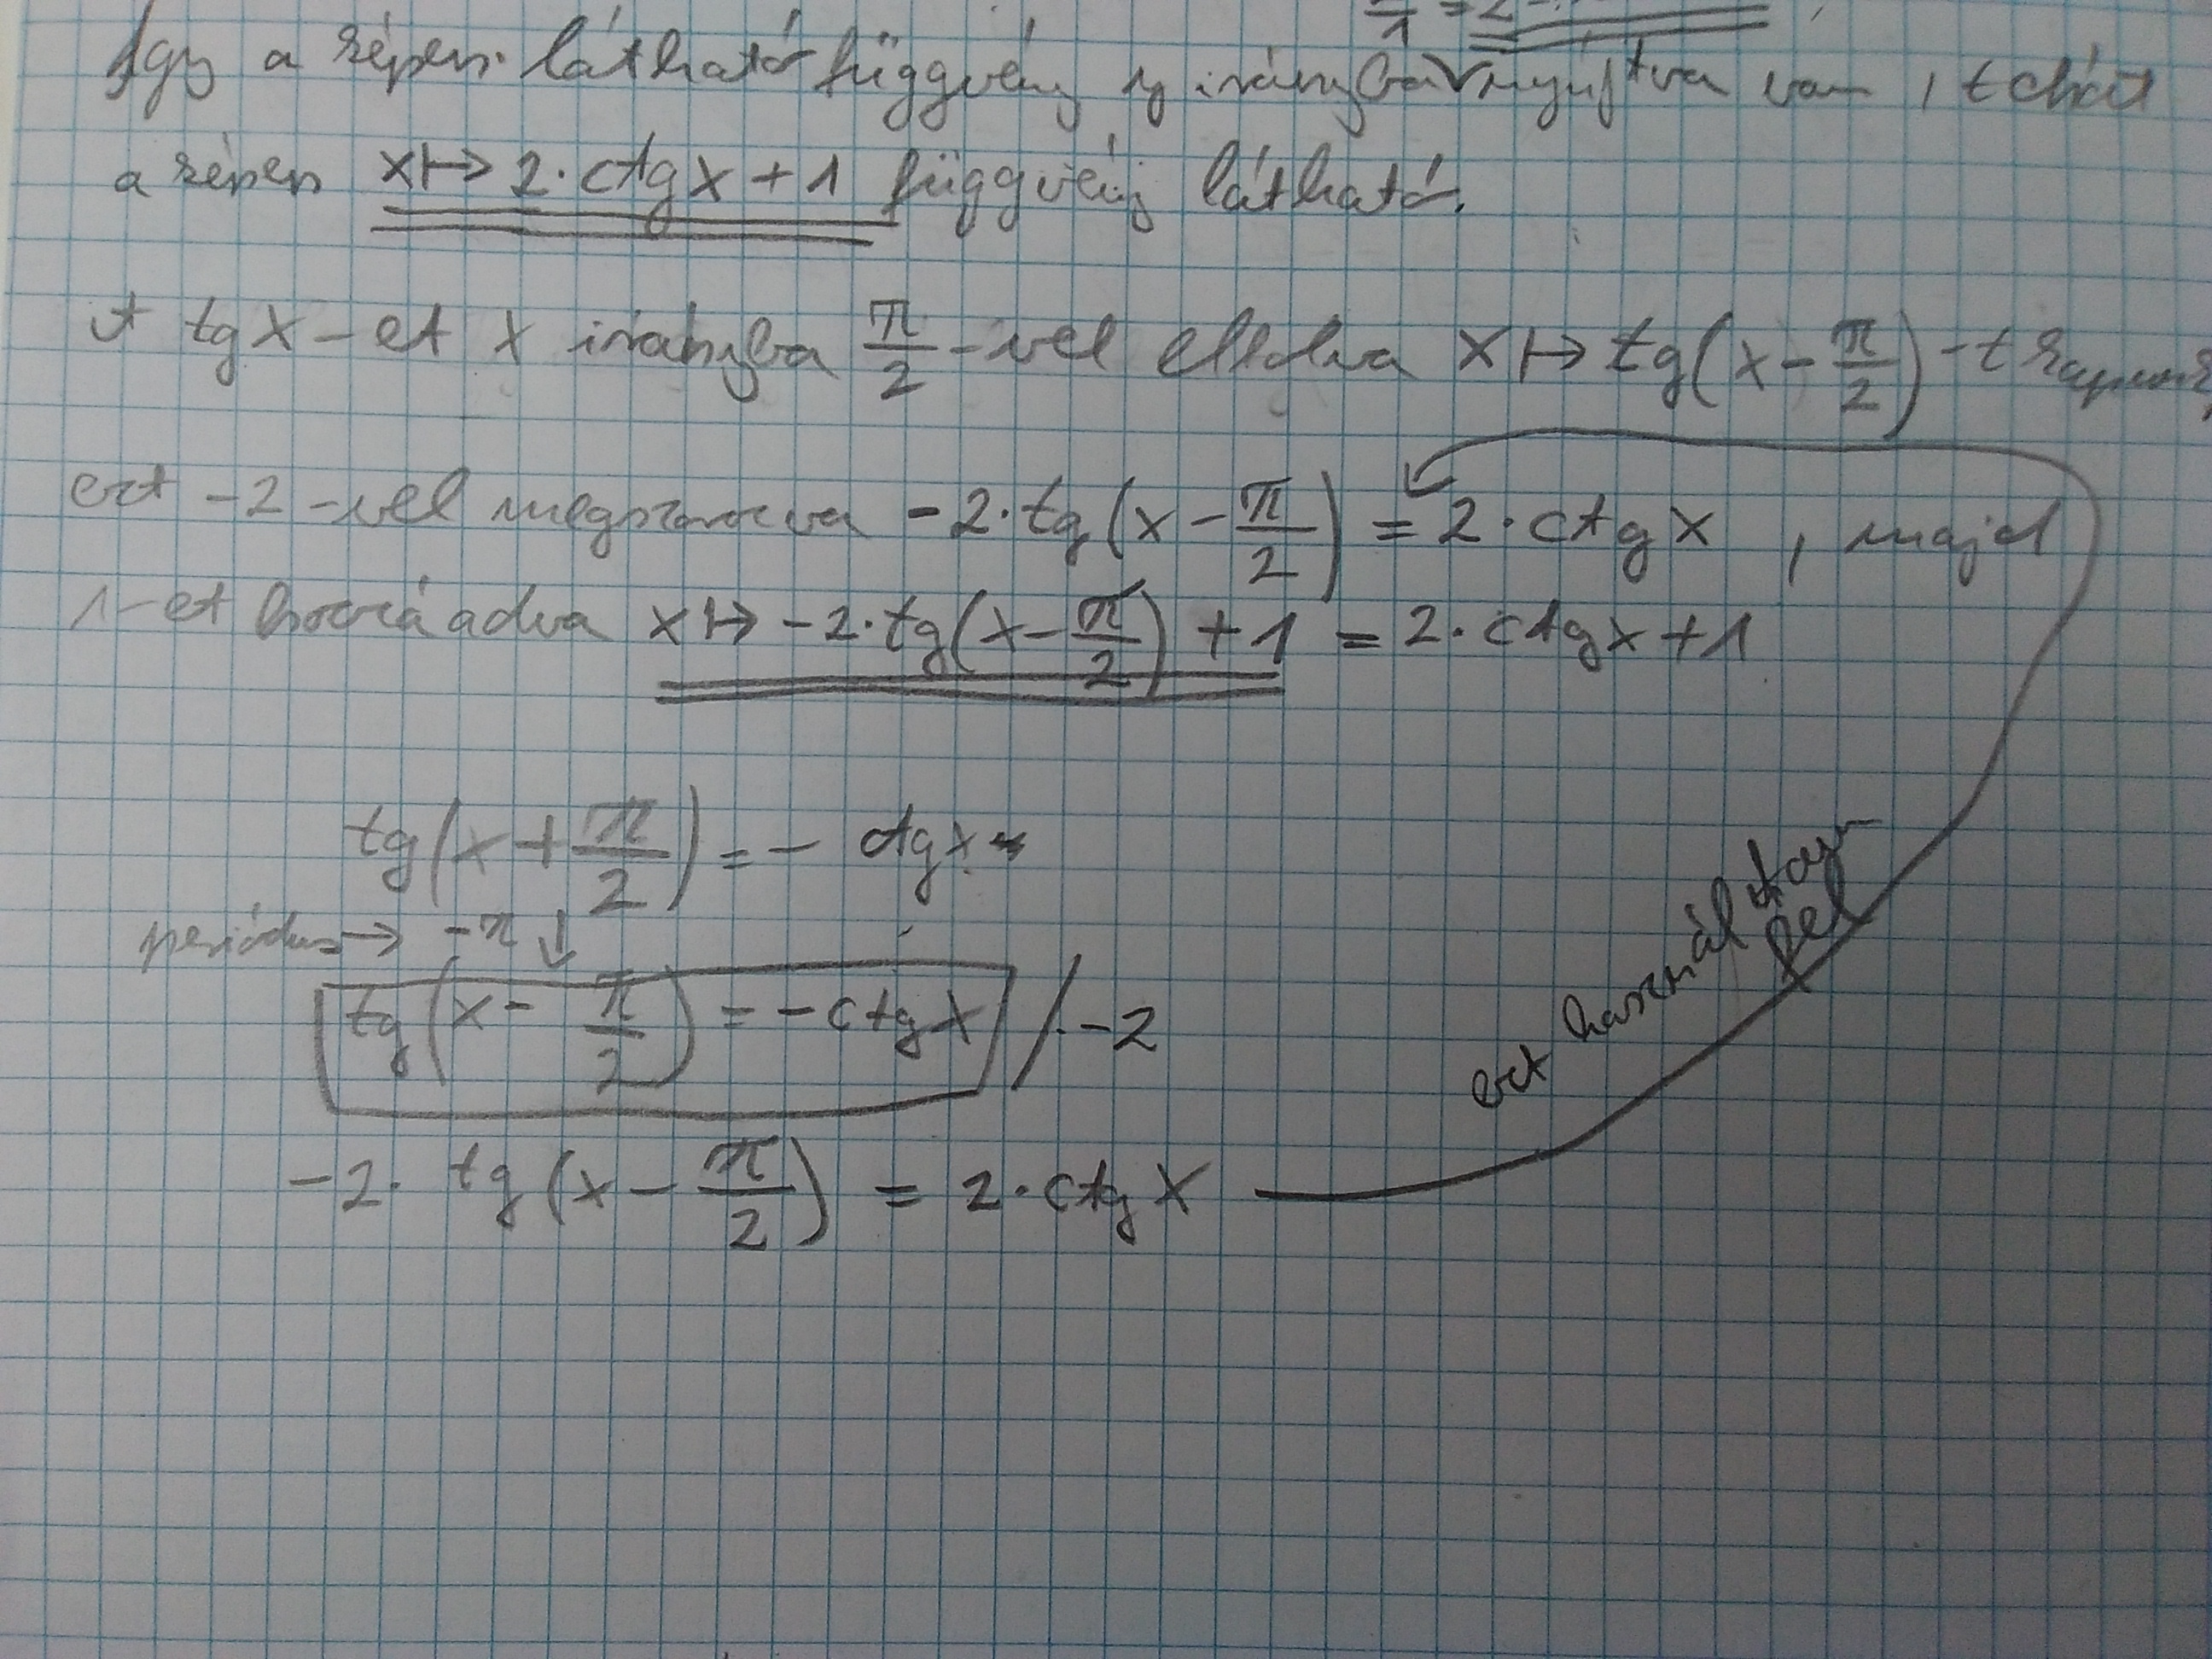 1 = 2
Így a képen látható függvény y irányban nyújtva van, tehát
a képen x ↦ 2·ctgx+1 függvény látható.
A tgx-et x irányba π/2-vel eltolva x ↦ tg(x-π/2)-t kapunk,
ezt -2-vel megszorozva -2·tg(x-π/2) = 2·ctgx, majd
1-et hozzáadva x ↦ -2·tg(x-π/2)+1 = 2·ctgx+1
tg(x+π/2) = - ctgx
periódus → -π ↓
tg(x-π/2) = -ctgx /·-2
ezt használtam fel
-2· tg(x-π/2) = 2·ctgx